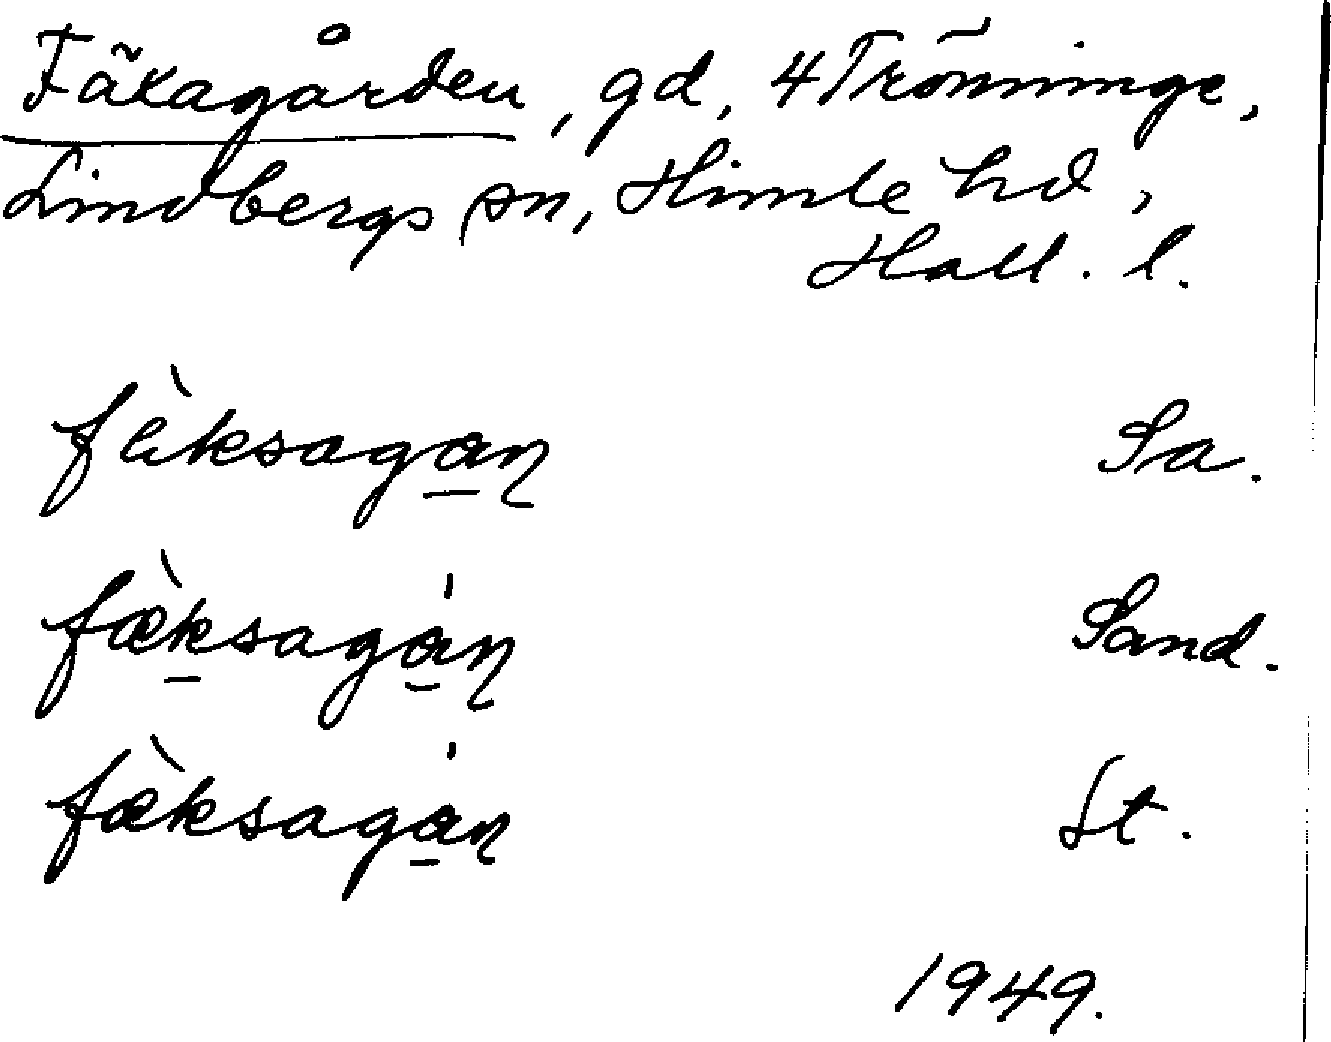 Fäxagården, gd, 4 Trönninge,
Lindbergs sn, Himle hd,
Hall. l.
fæ̀ksagan̡ Sa.
fæ̀ksagán̡ Sand.
fæ̀ksagán̡ St.
1949.